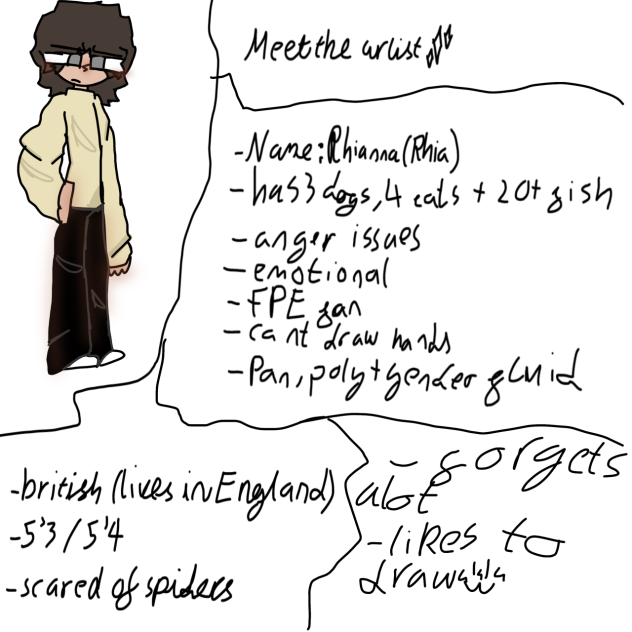 Meet the artist
-Name: Rhianna (Rhia)
-has 3 dogs, 4 cats + 20+ fish
-anger issues
-emotional
-FPE fan
-cant draw hands
-Pan, poly + gender fluid
-british (lives in England)
-5'3 / 5'4
-scared of spiders
- forgets
alot
-likes to
draw